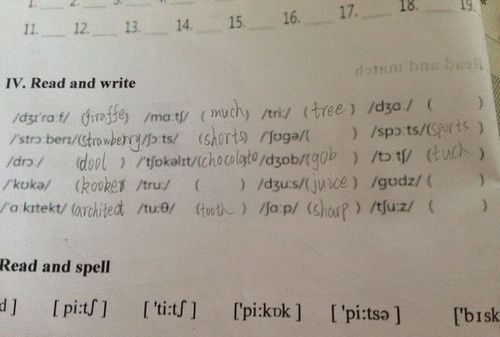 1. ___ 2. ___ 3. ___ 18. ___ 19.
11. ___ 12. ___ 13. ___ 14. ___ 15. ___ 16. ___ 17. ___
Read and match
IV. Read and write
/dʒɪ'rɑ:f/ (giraffe) /mɑ:tʃ/ (much) /tri:/ (tree) /dʒɑ:/ ( )
/'strɔ:berɪ/(strawberry)/ʃɔ:ts/ (shorts) /'ʃʊgə/( ) /spɔ:ts/(sports)
/drɔ:/ (dool) /'tʃɒkəlɪt/(chocolate)/dʒɒb/(gob) /tɔ:tʃ/ (tuch)
/'kʊkə/ (kooker) /tru:/ ( ) /dʒu:s/(juice) /gʊdz/ ( )
/'ɑ:kɪtekt/ (architect /tu:θ/ (tooth) /ʃɑ:p/ (sharp) /tʃu:z/ ( )
Read and spell
d ] [ pi:tʃ ] [ 'ti:tʃ ] ['pi:kɒk ] [ 'pi:tsə ] ['bɪsk